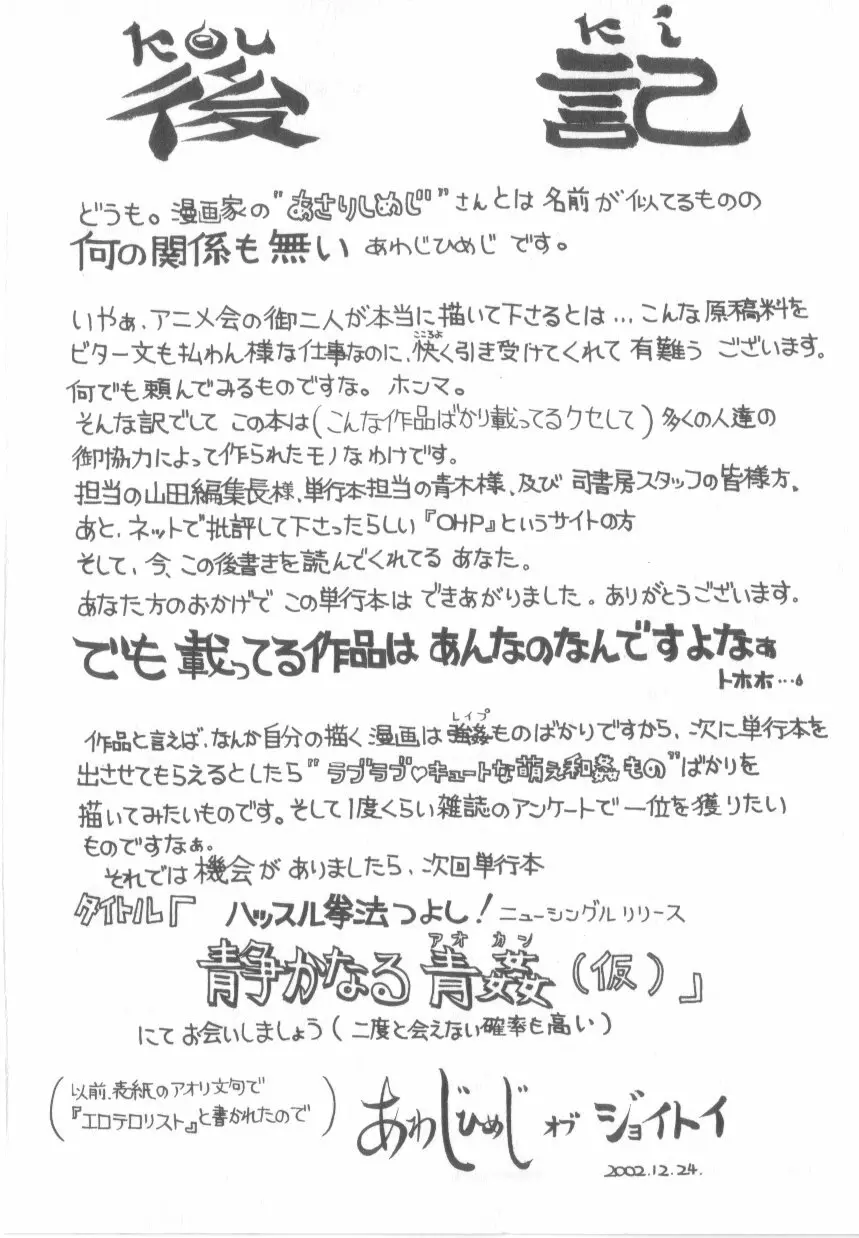 KOU KI
後記
どうも。漫画家の"あさりしめじ"さんとは 名前が似てるものの
何の関係も無い あわじひめじ です。
いやぁ、アニメ会の御二人が本当に描いて下さるとは…こんな原稿料を
ビター文も払わん様な仕事なのに、快く引き受けてくれて 有難う ございます。
こころよ
何でも頼んでみるものですな。ホンマ。
そんな訳でして この本は(こんな作品ばかり載ってるクセして)多くの人達の
御協力によって作られたモノなわけです。
担当の山田編集長様、単行本担当の青木様、及び 司書房スタッフの皆様方。
あと、ネットで批評して下さったらしい『OHP』というサイトの方
そして、今、この後書きを読んでくれてる あなた。
あなた方のおかげで この単行本は できあがりました。ありがとうございます。
でも 載ってる作品は あんなのなんですよなぁ
トホホ…。
作品と言えば、なんか自分の描く漫画は強姦ものばかりですから、次に単行本を
レイプ
出させてもらえるとしたら"ラブラブ♡キュートな萌え和姦もの"ばかりを
描いてみたいものです。そして1度くらい雑誌のアンケートで一位を獲りたい
ものですなぁ。
それでは 機会が ありましたら、次回単行本
タイトル『 ハッスル拳法つよし! ニューシングル リリース
アオカン
静かなる 青姦(仮)』
にて お会いしましょう(二度と会えない確率も高い)
(以前、表紙のアオリ文句で
『エロテロリスト』と書かれたので)
あわじひめじ オブ ジョイトイ
2002.12.24.